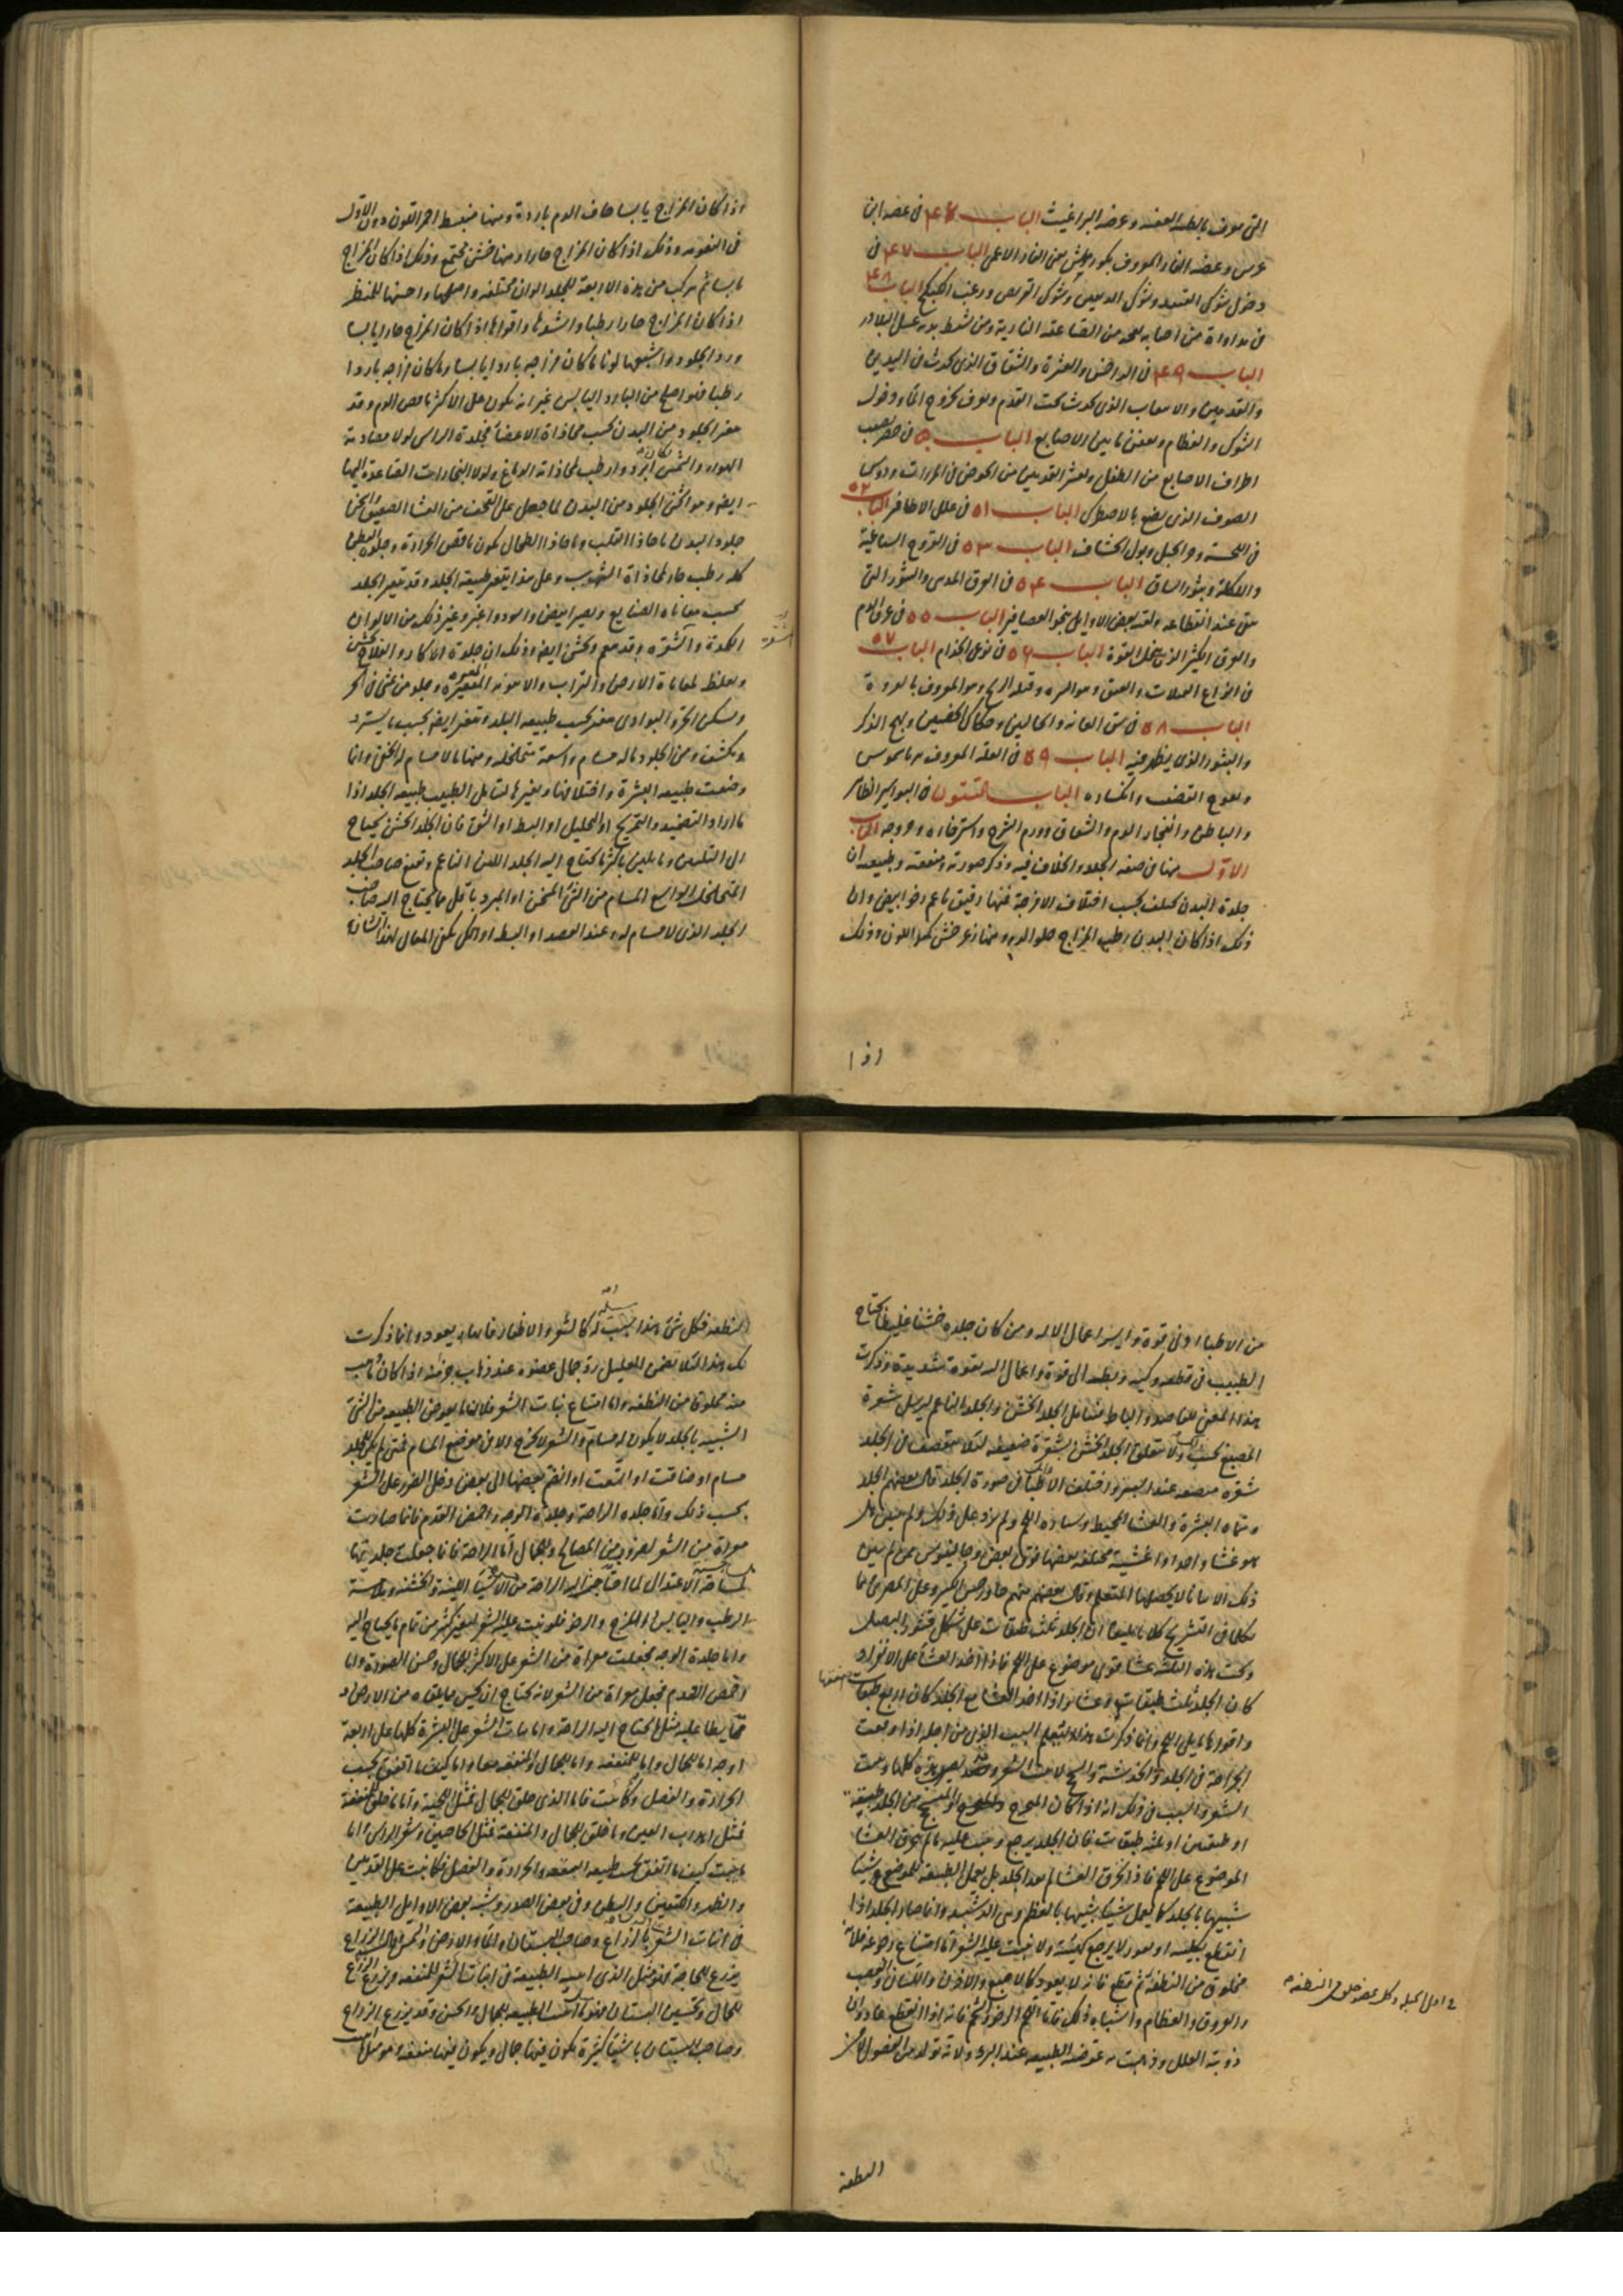 التى تعرف بالطبه العفنه وعضه البراغيث الباب ٤٦ فى عضه ابن
عرس وعضه الفار المعروف بكوربيش يعنى الفار الاعمى الباب ٤٧ فى
دخول شوك القنفد وشوك الدببين وشوك القريص وزغب الكبيكج الباب ٤٨
فى مداواة من اصابه لفحه من الصاعقة النارية ومن تنفط بدنه عسل البلادر
الباب ٤٩ فى الداحس والعثرة والشقاق الذى يحدث فى اليدين
والقدمين والاسعاب الذى يحدث تحت القدم ويعرف بخروج الماء ودخول
الشوك والعظام وتعفن ما بين الاصابع الباب ٥٠ فى
اطراف الاصابع من الطفل وتعثر القدمين من الخوض فى المرارات ودوس
الصوف الذى يصبغ بالاصطرك الباب ٥١ فى علل الاظافر الباب ٥٢
فى اللحسة ودوالجبل وبول الخشاف الباب ٥٣ فى القروح الساعية
والاكلة وبثور الساق الباب ٥٤ فى العرق المدنى والبثور التى
تبقى عند انقطاعه ولقبه بعض الاوايل بنجو العصافير الباب ٥٥ فى عرق الدم
والعرق الكثير الذى يحل القوة الباب ٥٦ فى نوعى الجذام الباب ٥٧
فى انواع القيلات والفتق ونتو السره وقيلة الريح وهو المعروف بالقروة
الباب ٥٨ فى شق العانه والحالبين وحكاك الخصيين وبلح الذكر
والبثور الذى يظهر فيه الباب ٥٩ فى العلة المعروفه برياسموس
وتعوج القضيب وانكساره الباب الستون فى البواسير الظاهر
والباطن وانفجار الدم والشقاق وورم الشرج واسترخاءه وخروجه الباب
الاول منها فى صفه الجلد والخلاف فيه وذكر صورته ومنفعته وطبيعه ان
جلدة البدن تختلف بحسب اختلاف الامزجة فمنها رقيق ناعم رخو ابيض وان
ذلك اذا كان البدن رطب المزاج حلو الدم ومنها زعر خشن كمد اللون وذلك
اذا
اذا كان المزاج يابسا جاف الدم بارده ومنها منبسط احمر اللون دون الاول
فى النعومه وذلك اذا كان المزاج حارا ومنها خشن مجتمع وذلك اذا كان المزاج
يابسا ثم يتركب من هذه الاربعة للجلد الوان مختلفه واصلحها واحسنها للمنظر
اذا كان المزاج حارا رطبا واشدها واقواها اذا كان المزاج حارا يابسا
وردا الجلود واشبعها لونا ما كان مزاجه باردا يابسا وما كان مزاجه باردا
رطبا فهو اصلح من البارد اليابس غير انه يكون على الاكثر ناقص الدم وقد
يتغير الجلود من البدن بحسب محاذاة الاعضا فجلدة الراس لولا مصادمة
الهواء والشمس ابرد وارطب لمحاذاته الدماغ ولولا البخارات الصاعدة اليها
ايضا وهو اثخن الجلود من البدن لما جعل على القحف من الغشا الصفيق الخن
جلود البدن ما حاذا القلب وما حاذا الطحال يكون ناقص الحرارة وجلد البطن
كله رطب حار لمحاذاة الشهوب وعلى هذا يتغير طبيعة الجلد وقد يتغير الجلد
بحسب معاناه الصنايع ويصير ابيض واسود واغبر وغير ذلك من الالوان
الكمدة والشقره وقد ينعم ويخشن ايضا وذلك ان جلدة الاكار والفلاح يخشن
ويغلظ لمعاناة الارض والتراب والاهويه المتغيره وجلد من يمشى فى الحر
ويسكن الحر والبوادى يتغير بحسب طبيعه البلد ويتغير ايضا بحسب ما يستره
ويكشفه ومن الجلود ما له مسام واسعة متخلخله ومنها ما لا مسام له البتة وانما
وصفت طبيعه البشرة واختلافها وتغيرها لتامل الطبيب طبيعه الجلد اذا
ما اراد التضميد والتمريخ او التحليل او البط او الشق فان الجلد الخشن يحتاج
الى التليين وما يلين باكثر ما يحتاج اليه الجلد اللين الناعم ويقنع صاحب الجلد
المتخلخل الواسع المسام من الشئ المسخن او المبرد باقل ما يحتاج اليه صاحب
الجلد الذى لا مسام له وعند الفصد او البط او الكى يكون المعال لهذا الشانه
من الاطبا ادنى قوة وايسر اعمال الاله ومن كان جلده خشنا غليظا يحتاج
الطبيب فى قطعه وكيه وبطه الى قوة واعمال اله بقوة شديدة وذكرت
هذا المعنى للفاصد والباط فتامل الجلد الخشن والجلد الناعم ليرسل شعرة
المبضع بحسب ولا يتعلق الجلد الخشن بشقرة ضعيفه لئلا ينقصف فى الجلد
شقره مبضعه عند البضع واختلف الاطبا فى صورة الجلد قال بعضهم الجلد
وسماه البشرة والغشا المحيط وستارة اللحم ولم يزد على ذلك ولم يبين هل
هو غشا واحد او اغشية مختلفه بعضها فوق بعض وجالينوس ممن لم يبين
ذلك الا بيانا لا يحصل منها المتعلم وقال بعضهم منهم جاورجس الكبير وعلى المصرى لما
تكلما فى التشريح كلاما بليغا ان الجلد ثلث طبقات على شكل قشور البصل
وتحت هذه الثلثه غشا قوى موضوع على اللحم فاذا اخذ الغشا على الانفراد
كان الجلد ثلث طبقات وغشا واذا اخذ الغشا مع الجلد كان اربع طبقات
واقواها ما يلى اللحم وانما ذكرت هذا ليتعلم السبب الذى من اجله اذا وقعت
الجراحة فى الجلد والخدشة والسحج لا ينبت الشعر وقد يصير هذه كلها وينبت
الشعر والسبب فى ذلك انه اذا كان الجرح من الجلد طبقه
او طبقتين او ثلثه طبقات فان الجلد يرجع وينبت عليه ما لم يخرق الغشا
الموضوع على اللحم فاذا انخرق الغشا لم يعد الجلد بل يعمل الطبيعه للموضع شيئا
شبيها بالجلد كما يعمل شيئا شبيها بالعظم وهى الدشبد وانما صار الجلد اذا
انقطع بكليته او بعوز لا يرجع كهيئته ولا ينبت عليه الشعر اما امتناع رجوعه فلانه
مخلوق من النطفة ثم قطع فانه لا يعود كالاصبع والاذن واللسان والعصب
والعروق والعظام واشباه ذلك فاما اللحم الرخو والشحم فانه اذا انقطع عاد وان
ذوبته العلل وذهبت به عوضه الطبيعه عند البرء ولانه تولد من الفضول لا من
فى اصل الجلد وكل عضو خلق من النطفه
النطفة
النطفه فكل شئ هذا سبب له كالشعر والاظفار فانه يعود وانما ذكرت
لك هذا لئلا تضمن للعليل رد جمال عضوه عند ذهاب جزء منه اذا كان
منه مخلوقا من النطفه واما امتناع نبات الشعر فلان ما يعوض الطبيعه من الشئ
الشبيه بالجلد لا يكون له مسام والشعر لا يخرج الا من موضع المسام فمتى لم يكن للجلد
مسام او ضاقت او اتسعت او انضم بعضها الى بعض دخل الضرر على الشعر
بحسب ذلك واما جلده الراحة وجلدة الوجه واخمص القدم فانما صارت
معراة من الشعر لضروب من المصالح وللجمال اما الراحة فانما جعلت جلدتها
الاعتدال لما احتاج اليه الراحة من الاشيا اللينة والخشنه وملامسة
الرطب واليابس اللزج والرخو فلو نبت عليه الشعر لتغير كثير من تمام ما يحتاج اليه
واما جلدة الوجه فجعلت معراة من الشعر على الاكثر للجمال وحسن الصورة واما
اخمص القدم فجعل معراة من الشعر لانه يحتاج ان يحس ما يلقاه من الارض و
مما يطا عليه مثل ما يحتاج اليه الراحة واما نبات الشعر على البشرة كلها على اربعة
اوجه اما للجمال واما للمنفعه واما للجمال والمنفعه معا واما كيف ما اتفق بحسب
الحرارة والفضل وكانت فاما الذى خلق للجمال فمثل اللحية واما ما خلق للمنفعه
فمثل اهداب العين وما خلق للجمال والمنفعه فمثل الحاجبين وشعر الراس واما
ما نبت كيف ما اتفق بحسب طبيعه العضو والحرارة والفضل فكما نبت على القدمين
والظهر والكتفين والبطن وفى بعض الصدر وشبه بعض الاوايل الطبيعة
فى انبات الشعر بالزراع وصاحب البستان والماء والارض والشمس فان الزراع
يزرع للحاجة فهو مثل الذى الطبيعة فى انبات الشعر للمنفعه ويزرع الزراع
للجمال وتحسين البستان فهو كما انبت الطبيعه للجمال والحسن وقد يزرع الزراع
وصاحب البستان اشيا كثيرة يكون فيها جمال ويكون فيها منفعه وهو مثل